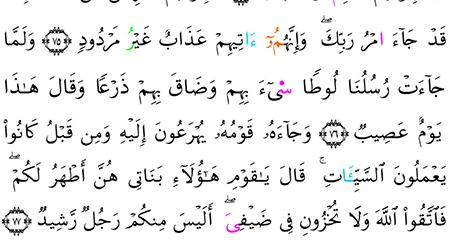 قَدْ جَآءَ امْرُ رَبِّكَۖ وَإِنَّهُمُۥٓ ءَاتِيهِمْ عَذَابٌ غَيْرُ مَرْدُودٖۖ ٧٥ وَلَمَّا
جَآءَتْ رُسُلُنَا لُوطٗا سِيٓءَ بِهِمْ وَضَاقَ بِهِمْ ذَرْعٗا وَقَالَ هَٰذَا
يَوْمٌ عَصِيبٞۖ ٧٦ وَجَآءَهُۥ قَوْمُهُۥ يُهْرَعُونَ إِلَيْهِ وَمِن قَبْلُ كَانُواْ
يَعْمَلُونَ اَ۬لسَّيِّـَٔاتِۚ قَالَ يَٰقَوْمِ هَٰٓؤُلَآءِ بَنَاتِي هُنَّ أَطْهَرُ لَكُمْۖ
فَاتَّقُواْ اُ۬للَّهَ وَلَا تُخْزُونِ فِي ضَيْفِيَۖ أَلَيْسَ مِنكُمْ رَجُلٞ رَّشِيدٞۖ ٧٧